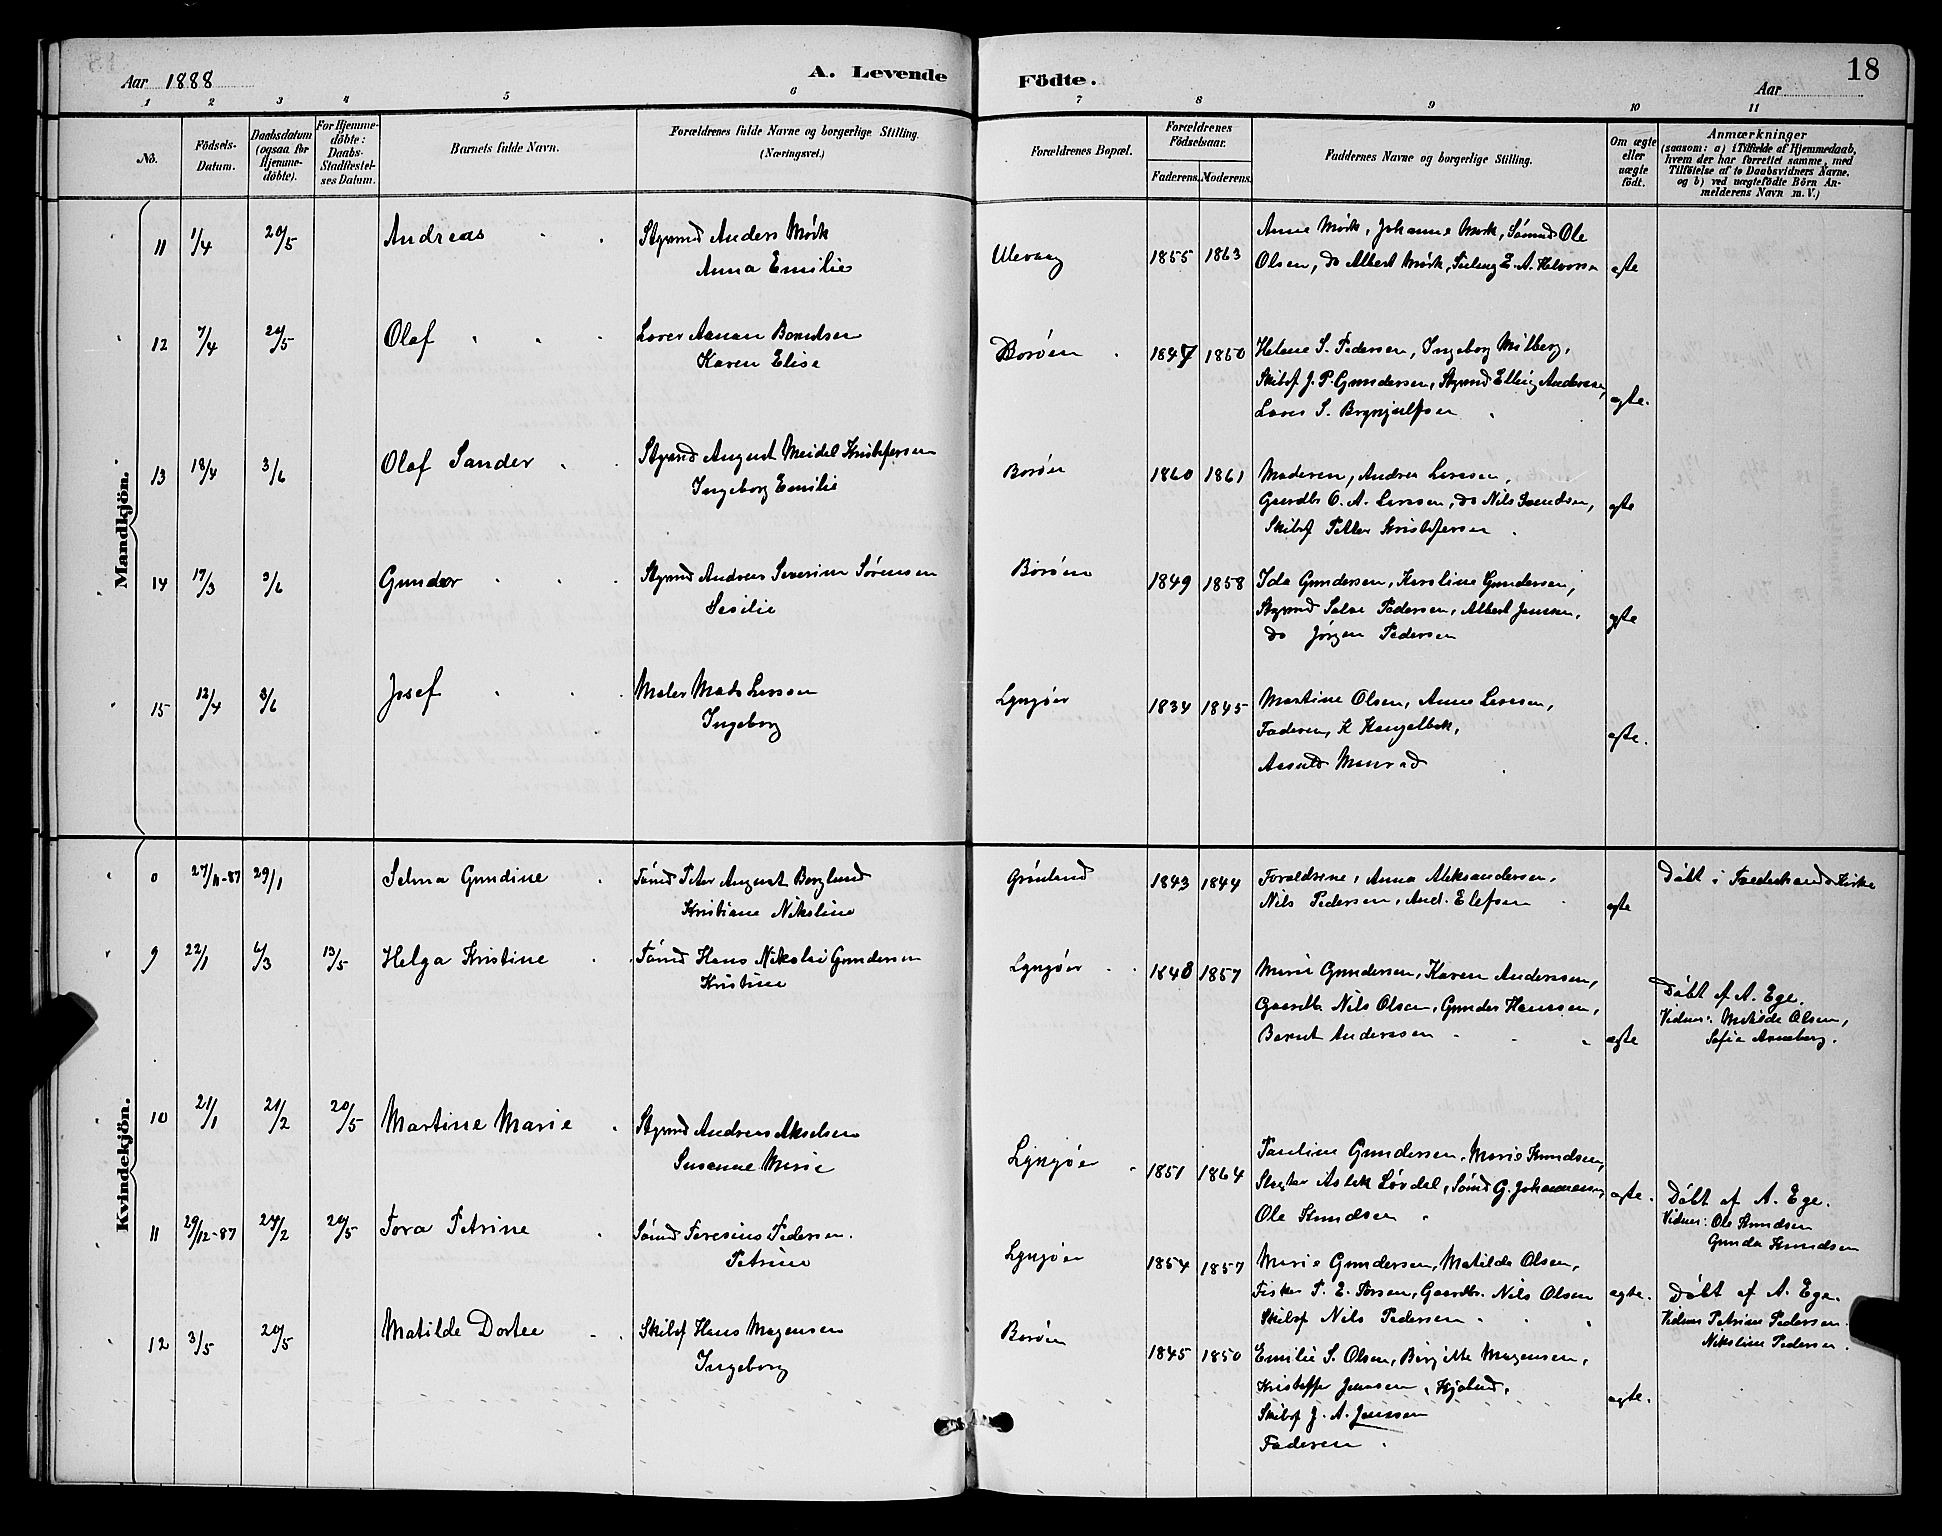 Aar 1888
A. Levende
Födte.
Aar
18
1 2 3 4 5 6 7 8 9 10 11
No.
Födsels-Datum.
Daabsdatum (ogsaa for Hjemme-döbte).
For Hjemme-döbte: Daabs-Stadfæstel-ses Datum.
Barnets fulde Navn.
Forældrenes fulde Navne og borgerlige Stilling. (Næringsvei.)
Forældrenes Bopæl.
Forældrenes Födselsaar.
Faderens. Moderens.
Faddernes Navne og borgerlige Stilling.
Om ægte eller uægte födt.
Anmærkninger
(saasom: a) i Tilfælde af Hjemmedaab,
hvem der har forrettet samme, med
Tilföielse af to Daabsvidners Navne.
og b) ved uægtefödte Börn An-
melderens Navn m.V.)
Mandkjön.
11 1/4 20/5 Andreas Styrmd Anders Mørk
Anna Emilie
Ulevaag 1855 1863
Anne Mørk, Johanne Mørk, Sømnd Ole
Olsen, do Albert Mørk, E. A. Halvorsen
ægte
12 7/4 20/5 Olaf Lover Aanon Berntsen
Karen Elise
Borøen 1847 1850
Helene S. Pedersen, Ingeborg Milberg,
Skibsf J. P. Gundersen, Styrmd Elling Andersen,
Loses S. Brynjulfsen
ægte.
13 18/4 3/6 Olaf Sander Styrmd August Meidel Kristofersen
Ingeborg Emilie
Borøen 1860 1861
Moderen, Andrea Larssen,
Gaardbr O. A. Larssen, do Nils Svendsen,
Skibsf Petter Kristofersen
ægte
14 17/3 3/6 Gunder Styrmd Andreas Severin Sørensen
Sesilie
Borøen 1849 1858
Ida Gundersen, Karoline Gundersen,
Styrmd Salve Pedersen, Albert Jensen,
do Jørgen Pedersen
ægte
15 12/4 3/6 Josef Maler Mads Larsen
Ingeborg
Lyngøer 1834 1845
Martine Olsen, Anne Larsen,
Faderen, K
ægte.
Kvindekjön.
8 27/11-87 29/1 Selma Gundine Sømd Peter August Berglund
Kristiane Nikoline
Grønland 1843 1844
Forældrene, Anna Aleksandersen,
Nils Pedersen, And. Elefsen
ægte
Døbt i Frederikands Kirke
9 22/1 6/3 13/5 Helga Kristine Sømd Hans Nikolai Gundersen
Kristine
Lyngøer 1848 1857
Marie Gundersen, Karen Anderssen,
Gaardbr Nils Olsen, Gunder Hanssen,
Bernt Anderssen
ægte
Døbt af A. Ege.
Vidner: Matilde Olsen,
Sofie Arneberg.
10 21/1 21/2 20/5 Martine Marie Styrmd Andreas Akselsen
Susanne Marie
Lyngøer 1851 1864
Pauline Gundersen, Marie Knudsen,
Aslak Løvdal, Sømd G. Johannesen
Ole Knudsen
ægte.
Døbt af A. Ege.
Vidner: Ole Knudsen
Gunda Knudsen
11 29/12-87 24/2 20/5 Tora Petrine Sømd Teresius Pedersen.
Petrine
Lyngøer 1854 1857
Marie Gundersen, Matilde Olsen,
Fisker T. E. Torsen, Gaardbr. Nils Olsen
Skibsf Nils Pedersen
ægte.
Døbt af A. Ege.
Vidner Petrine Pedersen
Nikoline Pedersen.
12 3/5 20/5 Matilde Dortea Skibsf Hans Magensen
Ingeborg
Borøen 1845 1850
Emilie S. Olsen, Birgitte Magensen,
Kristoffer Jenssen,
Skibsf J. A. Jenssen
Faderen
ægte.